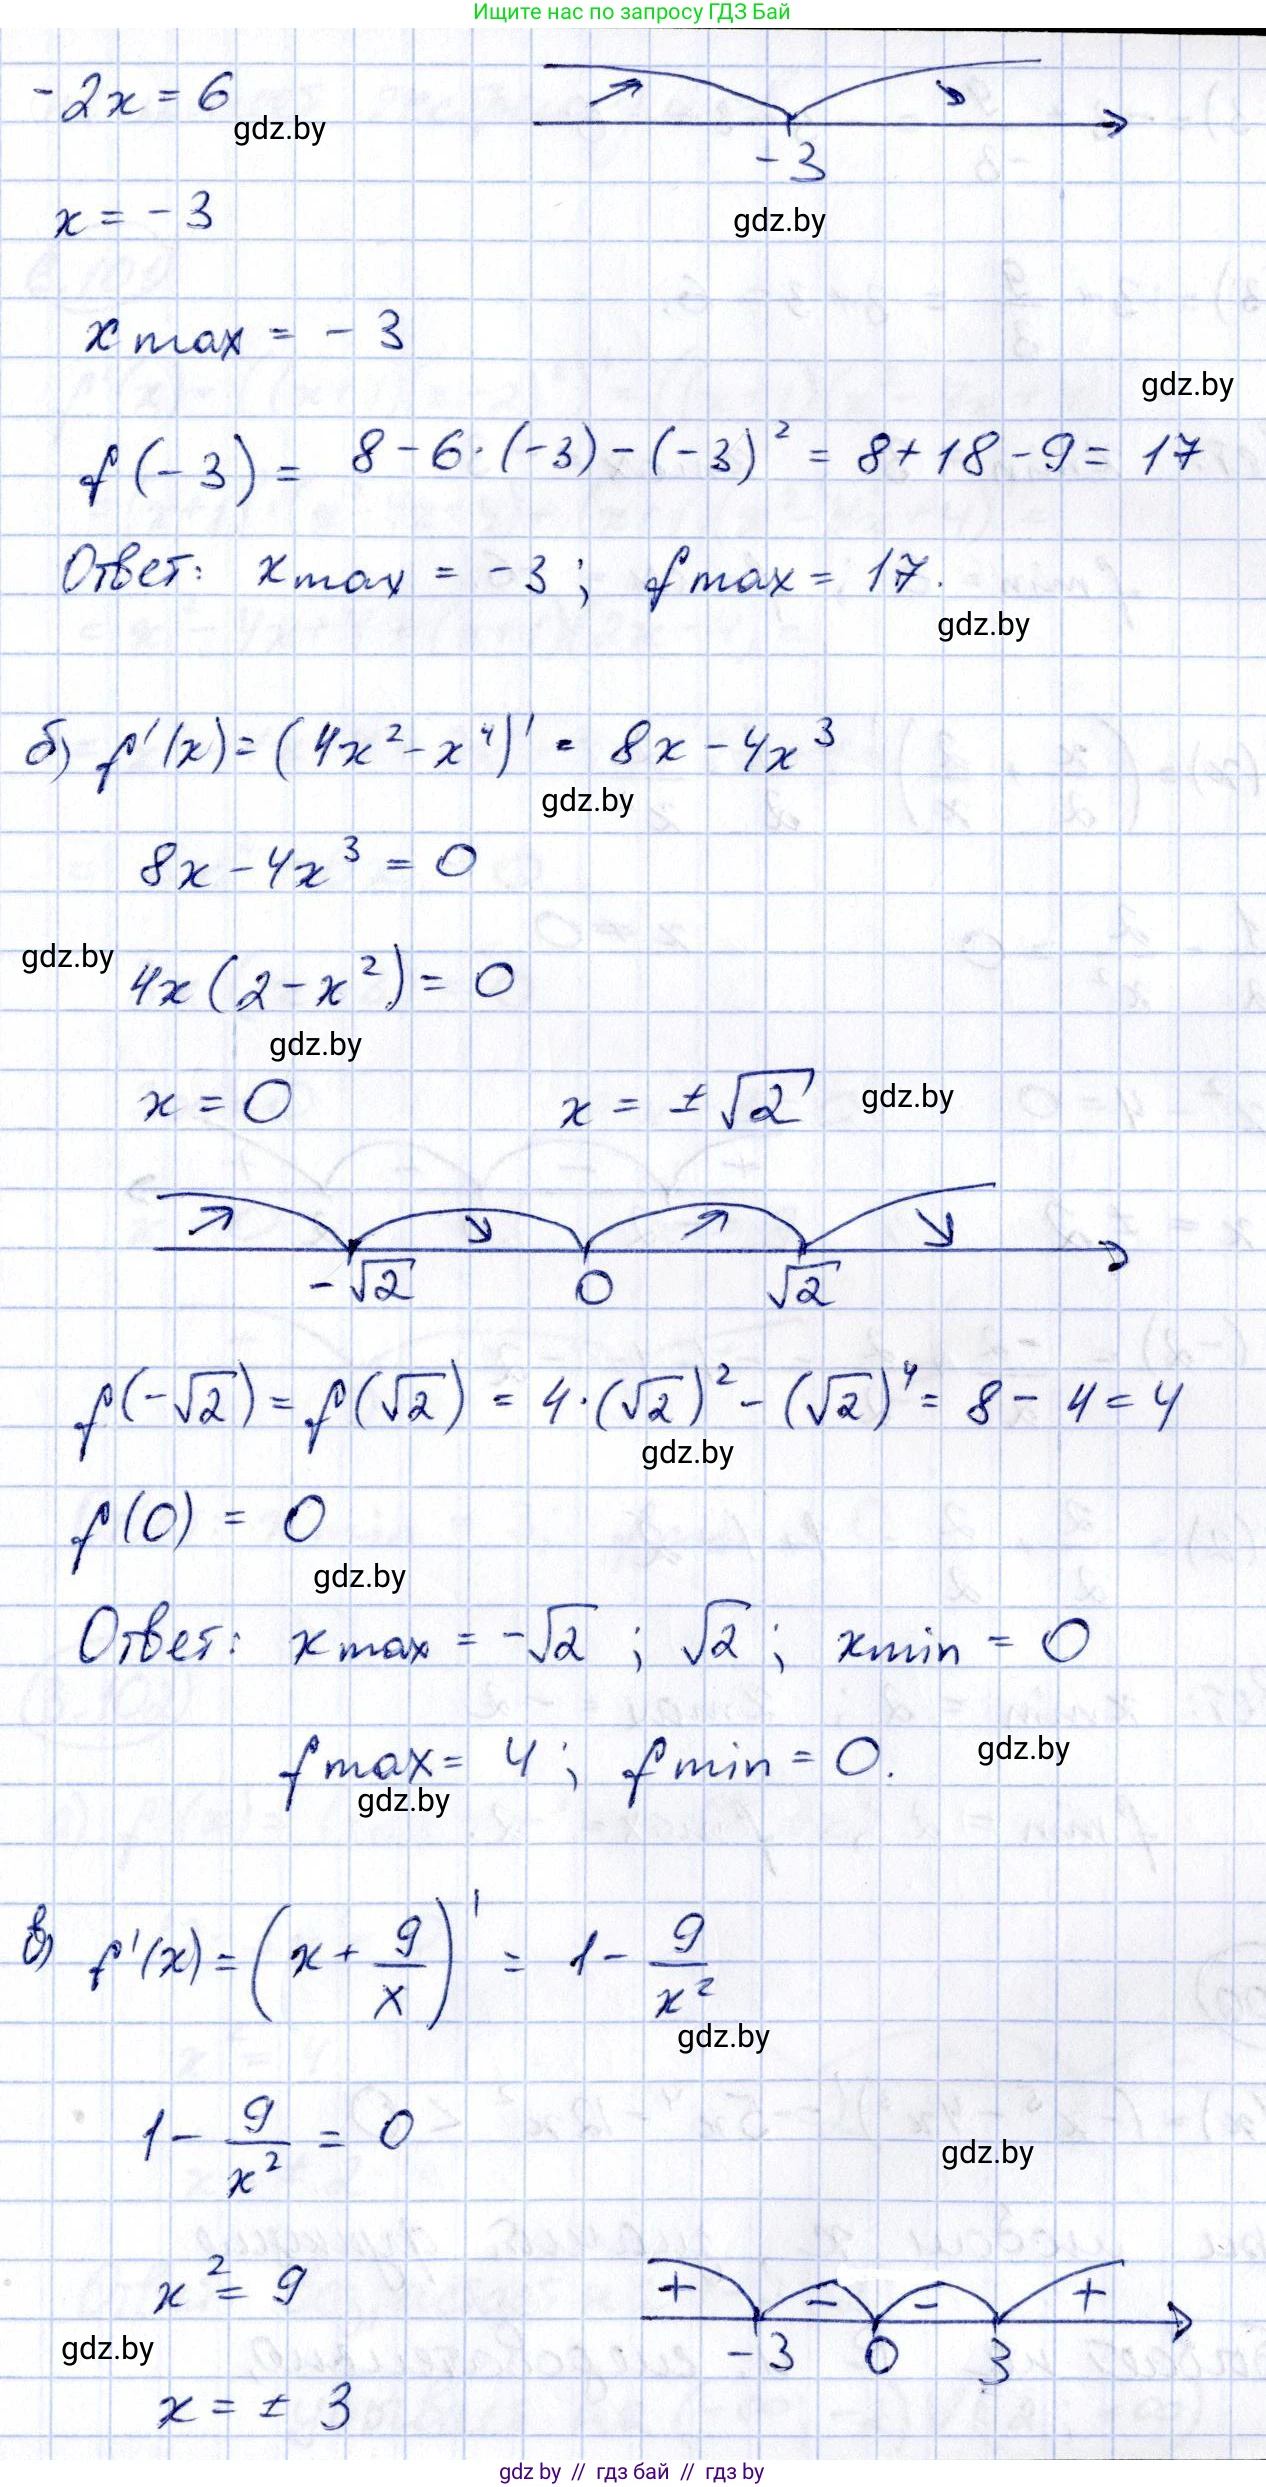 Ищите нас по запросу ГДЗ Бай
-2x = 6
gdz.by
-3
gdz.by
x = -3
x max = -3
gdz.by
f(-3) = 8 - 6·(-3) - (-3)² = 8 + 18 - 9 = 17
Ответ: x max = -3; f max = 17.
gdz.by
б) f'(x) = (4x² - x⁴)' = 8x - 4x³
gdz.by
8x - 4x³ = 0
gdz.by
4x(2 - x²) = 0
gdz.by
x = 0 x = ±√2
gdz.by
-√2 0 √2
f(-√2) = f(√2) = 4·(√2)² - (√2)⁴ = 8 - 4 = 4
gdz.by
f(0) = 0
gdz.by
Ответ: x max = -√2; √2; x min = 0
f max = 4; f min = 0.
gdz.by
gdz.by
в) f'(x) = (x + 9/x)' = 1 - 9/x²
gdz.by
1 - 9/x² = 0
gdz.by
x² = 9
+ - - +
-3 0 3
gdz.by
x = ± 3
gdz by // гдз бай // гдз by